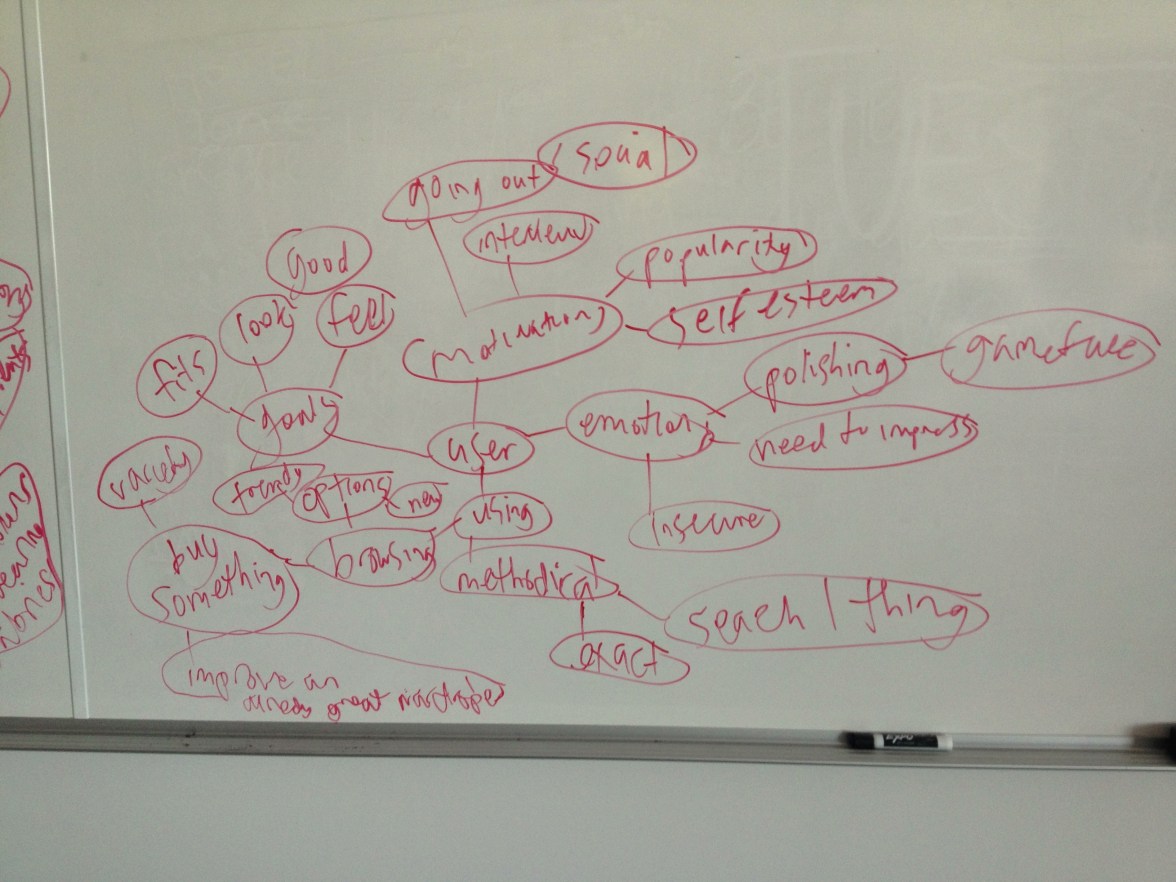 social
going out
interview
good
popularity
look
feel
self esteem
motivations
fits
polishing
gameface
goals
emotions
need to impress
user
variety
trendy
options
new
using
insecure
buy
something
browsing
methodical
seach 1 thing
exact
improve an
already great wardrobe